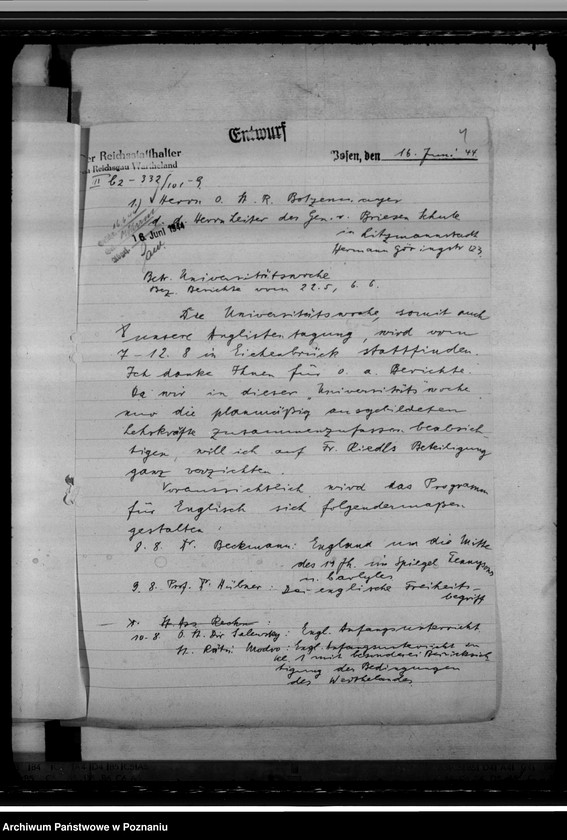 Entwurf
Der Reichsstatthalter
im Reichsgau Wartheland
Posen, den 16. Juni 44.
II C2 - 332/101-9
1.) Herrn O. St. R. Botzenmayer
Herrn Leiter des Gen. v. Briesen Schule
in Litzmannstadt
Hermann Göringstr 123
16. Juni 1944
Betr. Universitätswoche
Bez. Berichte vom 22.5, 6.6.
Die Universitätswoche, somit auch
unsere Anglistentagung, wird vom
7-12.8 in Eichenbrück stattfinden.
Ich danke Ihnen für o. a. Berichte.
Da wir in dieser Universitätswoche
nur die planmäßig ausgebildeten
Lehrkräfte zusammenzufassen beabsich-
tigen, will ich auf Fr. Riedls Beteiligung
ganz verzichten.
Voraussichtlich wird das Programm
für Englisch sich folgendermaßen
gestalten:
8.8. Dr. Beckmann: England um die Mitte
des 19 Jh. im Spiegel Tennysons
u. Carlyles
9.8. Prof. Dr. Hübner: Der englische Freiheits-
begriff
10.8 O. St. Dir Salewsky: Engl. Anfangsunterricht.
St. Rätin Modro: Engl. Anfangsunterricht in
Kl. 1 mit besonderer Berücksich
tigung der Bedingungen
des Warthelandes
Archiwum Państwowe w Poznaniu